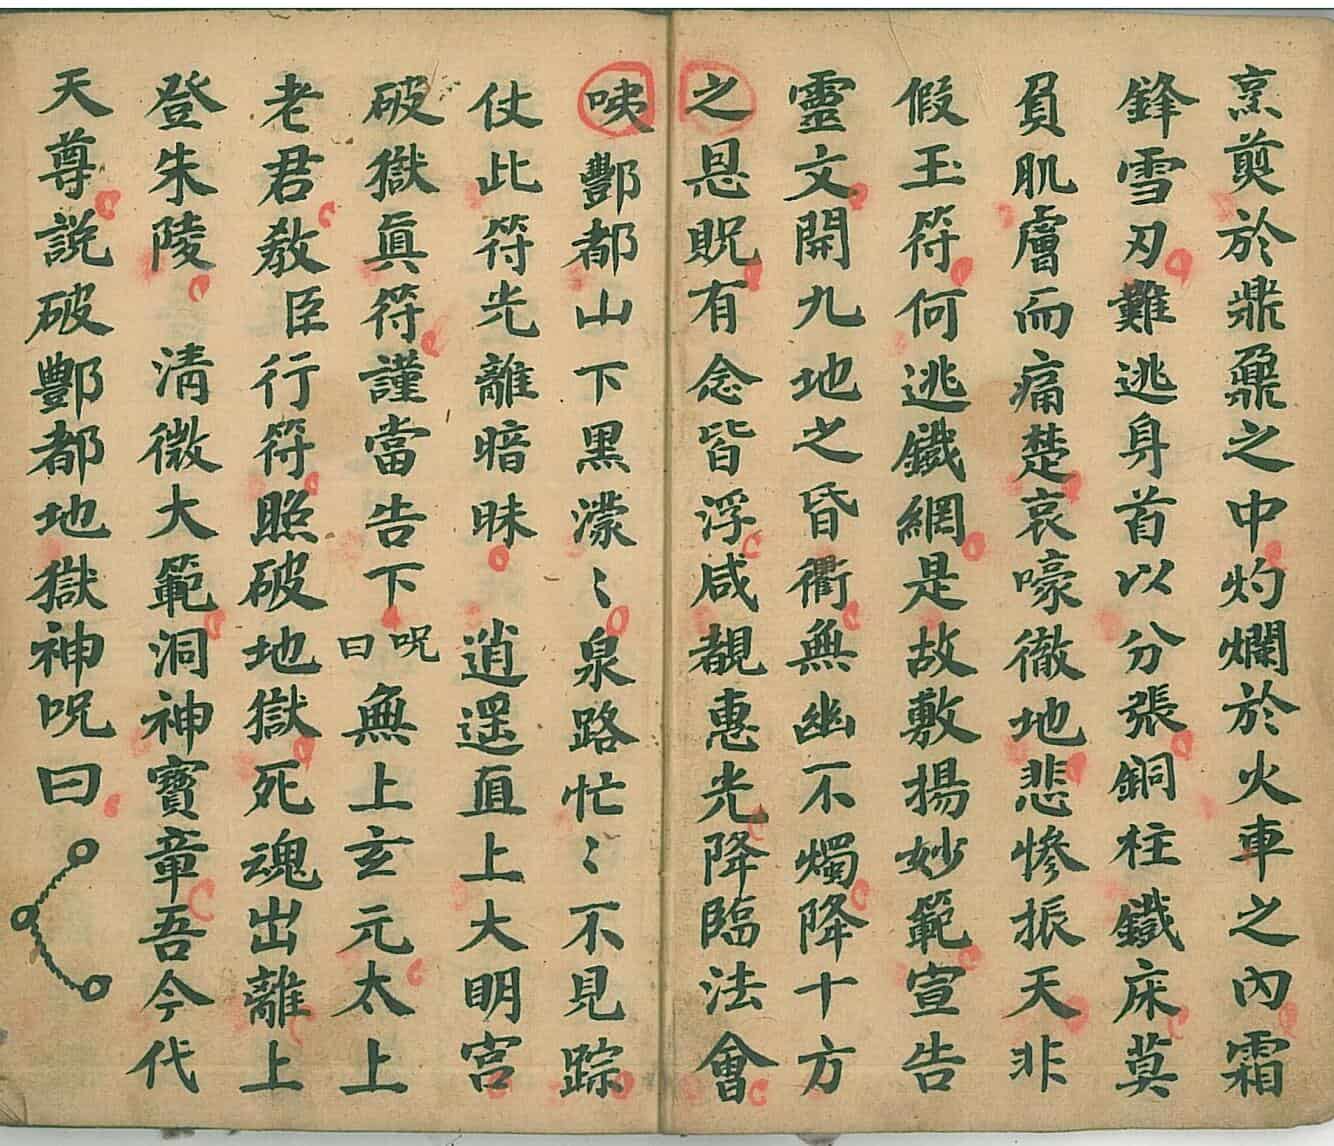 烹煎於鼎鼐之中灼爛於火車之內霜
鋒雪刃難逃身首以分張銅柱鐵床莫
負肌膚而痛楚哀嚎徹地悲慘振天非
假玉符何逃鐵網是故敷揚妙範宣告
靈文開九地之昏衢無幽不燭降十方
之恩貺有念皆浮咸覩惠光降臨法會
咦酆都山下黑濛〻泉路忙〻不見踪
仗此符光離暗昧 逍遥直上大明宮
破獄真符謹當告下 呪曰 無上玄元太上
老君敎 臣行符照破地獄死魂出離上
登朱陵 清微大範洞神寶章吾今代
天尊說破酆都地獄神呪曰